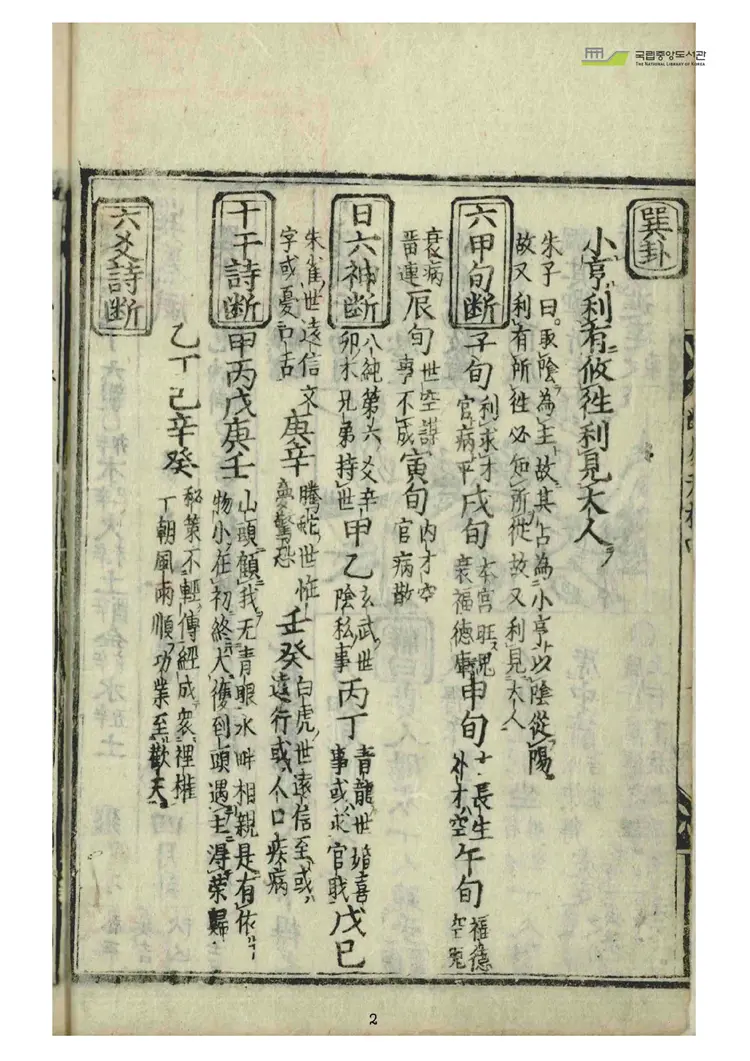 국립중앙도서관
THE NATIONAL LIBRARY OF KOREA
巽卦
小亨利有攸往利見大人
朱子曰取陰為主故其占為小亨以陰從陽
故又利有所往必知所從故又利見大人
六甲旬断
子旬 利求才 官病平 戌旬 本宮旺鬼 衰福德 申旬 土長生 外才空 午旬 福德 空鬼
衰病 辰旬 世空謀 事不成 寅旬 内才空 官病散
日六神断
八純第六爻辛 卯木兄弟持世 甲乙 玄武世 陰私事 丙丁 青龍世婚喜 事或求官職 戊己
朱雀世遠信文 字或憂口舌 庚辛 騰蛇世怪 夢驚恐 壬癸 白虎世遠信至或 遠行或人口疾病
十干詩断
甲丙戊庚壬 山頭顧我无青眼水畔相親是有依 物小在初終大復到頭遇主得荣歸
乙丁己辛癸 策不輕傳經成衆裡榷 丁朝風雨順功業至歡天
六爻詩断
2